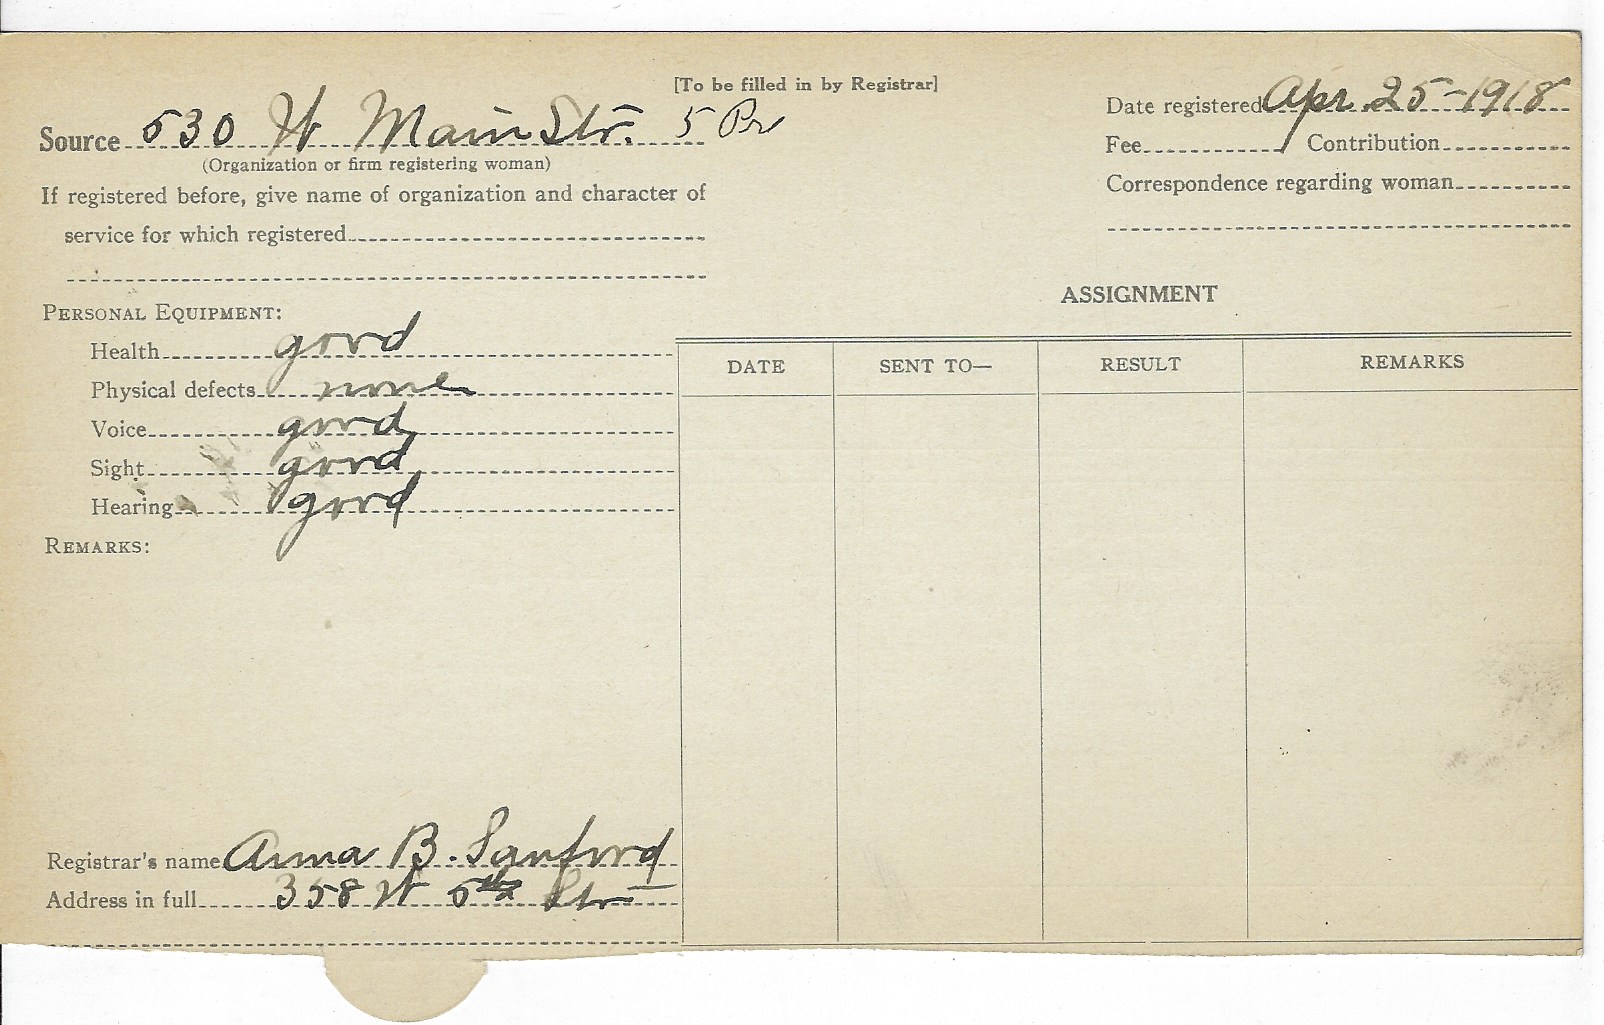 [To be filled in by Registrar]
Source 530 W Main Str. 5 Pr
(Organization or firm registering woman)
If registered before, give name of organization and character of
service for which registered
Date registered Apr. 25-1918
Fee Contribution
Correspondence regarding woman
PERSONAL EQUIPMENT:
Health good
Physical defects none
Voice good
Sight good
Hearing good
REMARKS:
ASSIGNMENT
DATE SENT TO— RESULT REMARKS
Registrar's name Anna B. Sanford
Address in full 358 W 5th Str